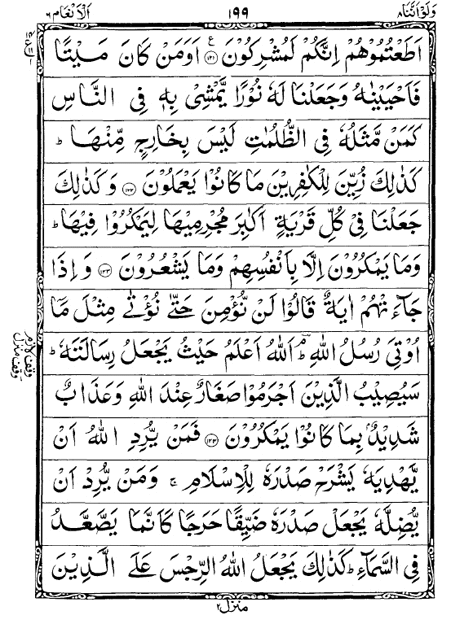 ولو اننا ٨ ١٩٩ الانعام ٦
اَطَعْتُمُوْهُمْ اِنَّكُمْ لَمُشْرِكُوْنَ ﴿١٢١﴾ ع اَوَمَنْ كَانَ مَيْتًا
فَاَحْيَيْنٰهُ وَجَعَلْنَا لَهٗ نُوْرًا يَّمْشِىْ بِهٖ فِى النَّاسِ
كَمَنْ مَّثَلُهٗ فِى الظُّلُمٰتِ لَيْسَ بِخَارِجٍ مِّنْهَا ؕ
كَذٰلِكَ زُيِّنَ لِلْكٰفِرِيْنَ مَا كَانُوْا يَعْمَلُوْنَ ﴿١٢٢﴾ وَكَذٰلِكَ
جَعَلْنَا فِىْ كُلِّ قَرْيَةٍ اَكٰبِرَ مُجْرِمِيْهَا لِيَمْكُرُوْا فِيْهَا ؕ
وَمَا يَمْكُرُوْنَ اِلَّا بِاَنْفُسِهِمْ وَمَا يَشْعُرُوْنَ ﴿١٢٣﴾ وَاِذَا
جَآءَتْهُمْ اٰيَةٌ قَالُوْا لَنْ نُّؤْمِنَ حَتّٰى نُؤْتٰى مِثْلَ مَآ
اُوْتِىَ رُسُلُ اللّٰهِ ؔۘ اَللّٰهُ اَعْلَمُ حَيْثُ يَجْعَلُ رِسَالَتَهٗ ؕ
سَيُصِيْبُ الَّذِيْنَ اَجْرَمُوْا صَغَارٌ عِنْدَ اللّٰهِ وَعَذَابٌ
شَدِيْدٌۢ بِمَا كَانُوْا يَمْكُرُوْنَ ﴿١٢٤﴾ فَمَنْ يُّرِدِ اللّٰهُ اَنْ
يَّهْدِيَهٗ يَشْرَحْ صَدْرَهٗ لِلْاِسْلَامِ ۚ وَمَنْ يُّرِدْ اَنْ
يُّضِلَّهٗ يَجْعَلْ صَدْرَهٗ ضَيِّقًا حَرَجًا كَاَنَّمَا يَصَّعَّدُ
فِى السَّمَآءِ ؕ كَذٰلِكَ يَجْعَلُ اللّٰهُ الرِّجْسَ عَلَى الَّذِيْنَ
منزل ٢